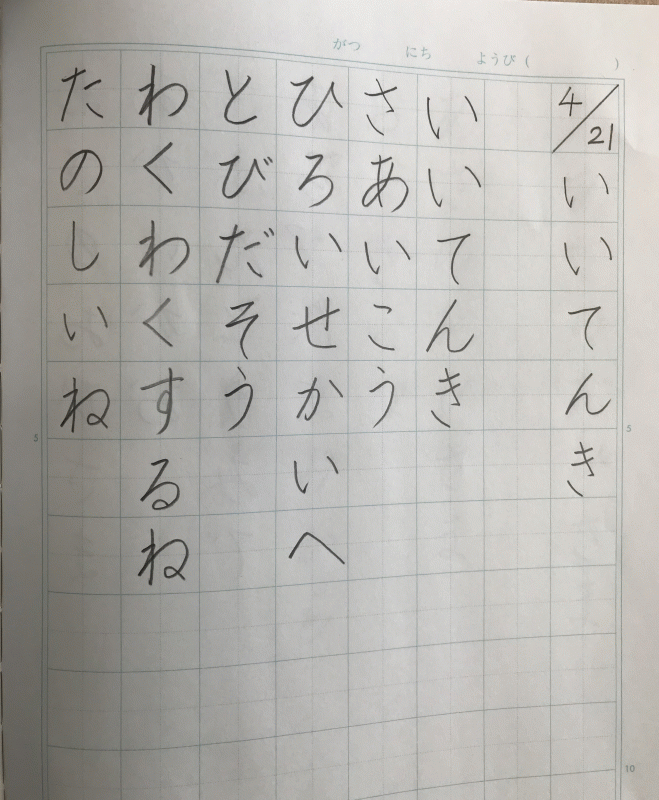 がつ にち ようび( )
4/21 いいてんき
いいてんき
さあいこう
ひろいせかいへ
とびだそう
わくわくするね
たのしいね
5
5
10